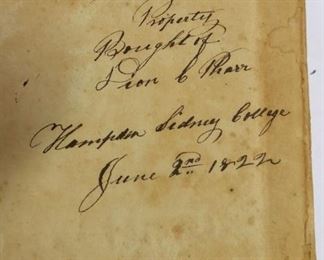 Property
Bought of
Dion C Pharr
Hampden Sidney College
June 2nd 1822